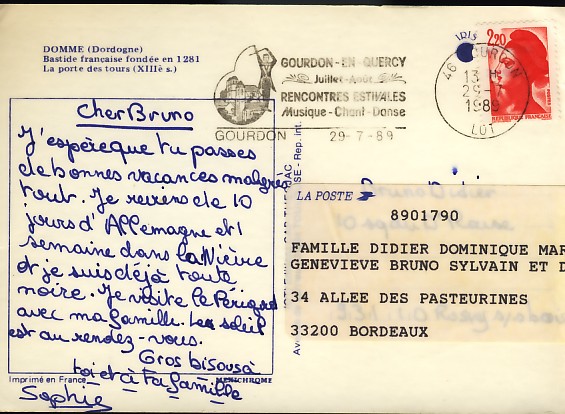 DOMME (Dordogne)
Bastide française fondée en 1281
La porte des tours (XIIIè s.)
GOURDON-EN-QUERCY
Juillet-Août
RENCONTRES ESTIVALES
Musique-Chant-Danse
GOURDON 29-7-89
46 GOURDON
13 H
29-7
1989
LOT
2,20
REPUBLIQUE FRANÇAISE
Cher Bruno
J'espère que tu passes
de bonnes vacances malgrés
tout. Je reviens de 10
jours d'Allemagne et 1
semaine dans la Nièvre
et je suis déjà toute
noire. Je visite le Périgord
avec ma famille. Le soleil
est au rendez-vous.
Gros bisous à
toi et à ta famille
Sophie
Imprimé en France
MEXICHROME
LA POSTE
8901790
FAMILLE DIDIER DOMINIQUE MAR
GENEVIEVE BRUNO SYLVAIN ET D
34 ALLEE DES PASTEURINES
33200 BORDEAUX